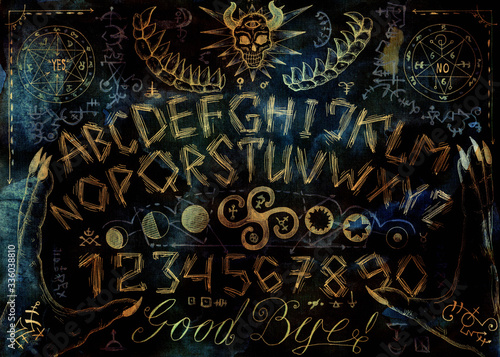 "YES" NO
ABCDEFGHIJKLM
NOPQRSTUVWXYZ
1234567890
Good Bye!
Adobe Stock | #336038810